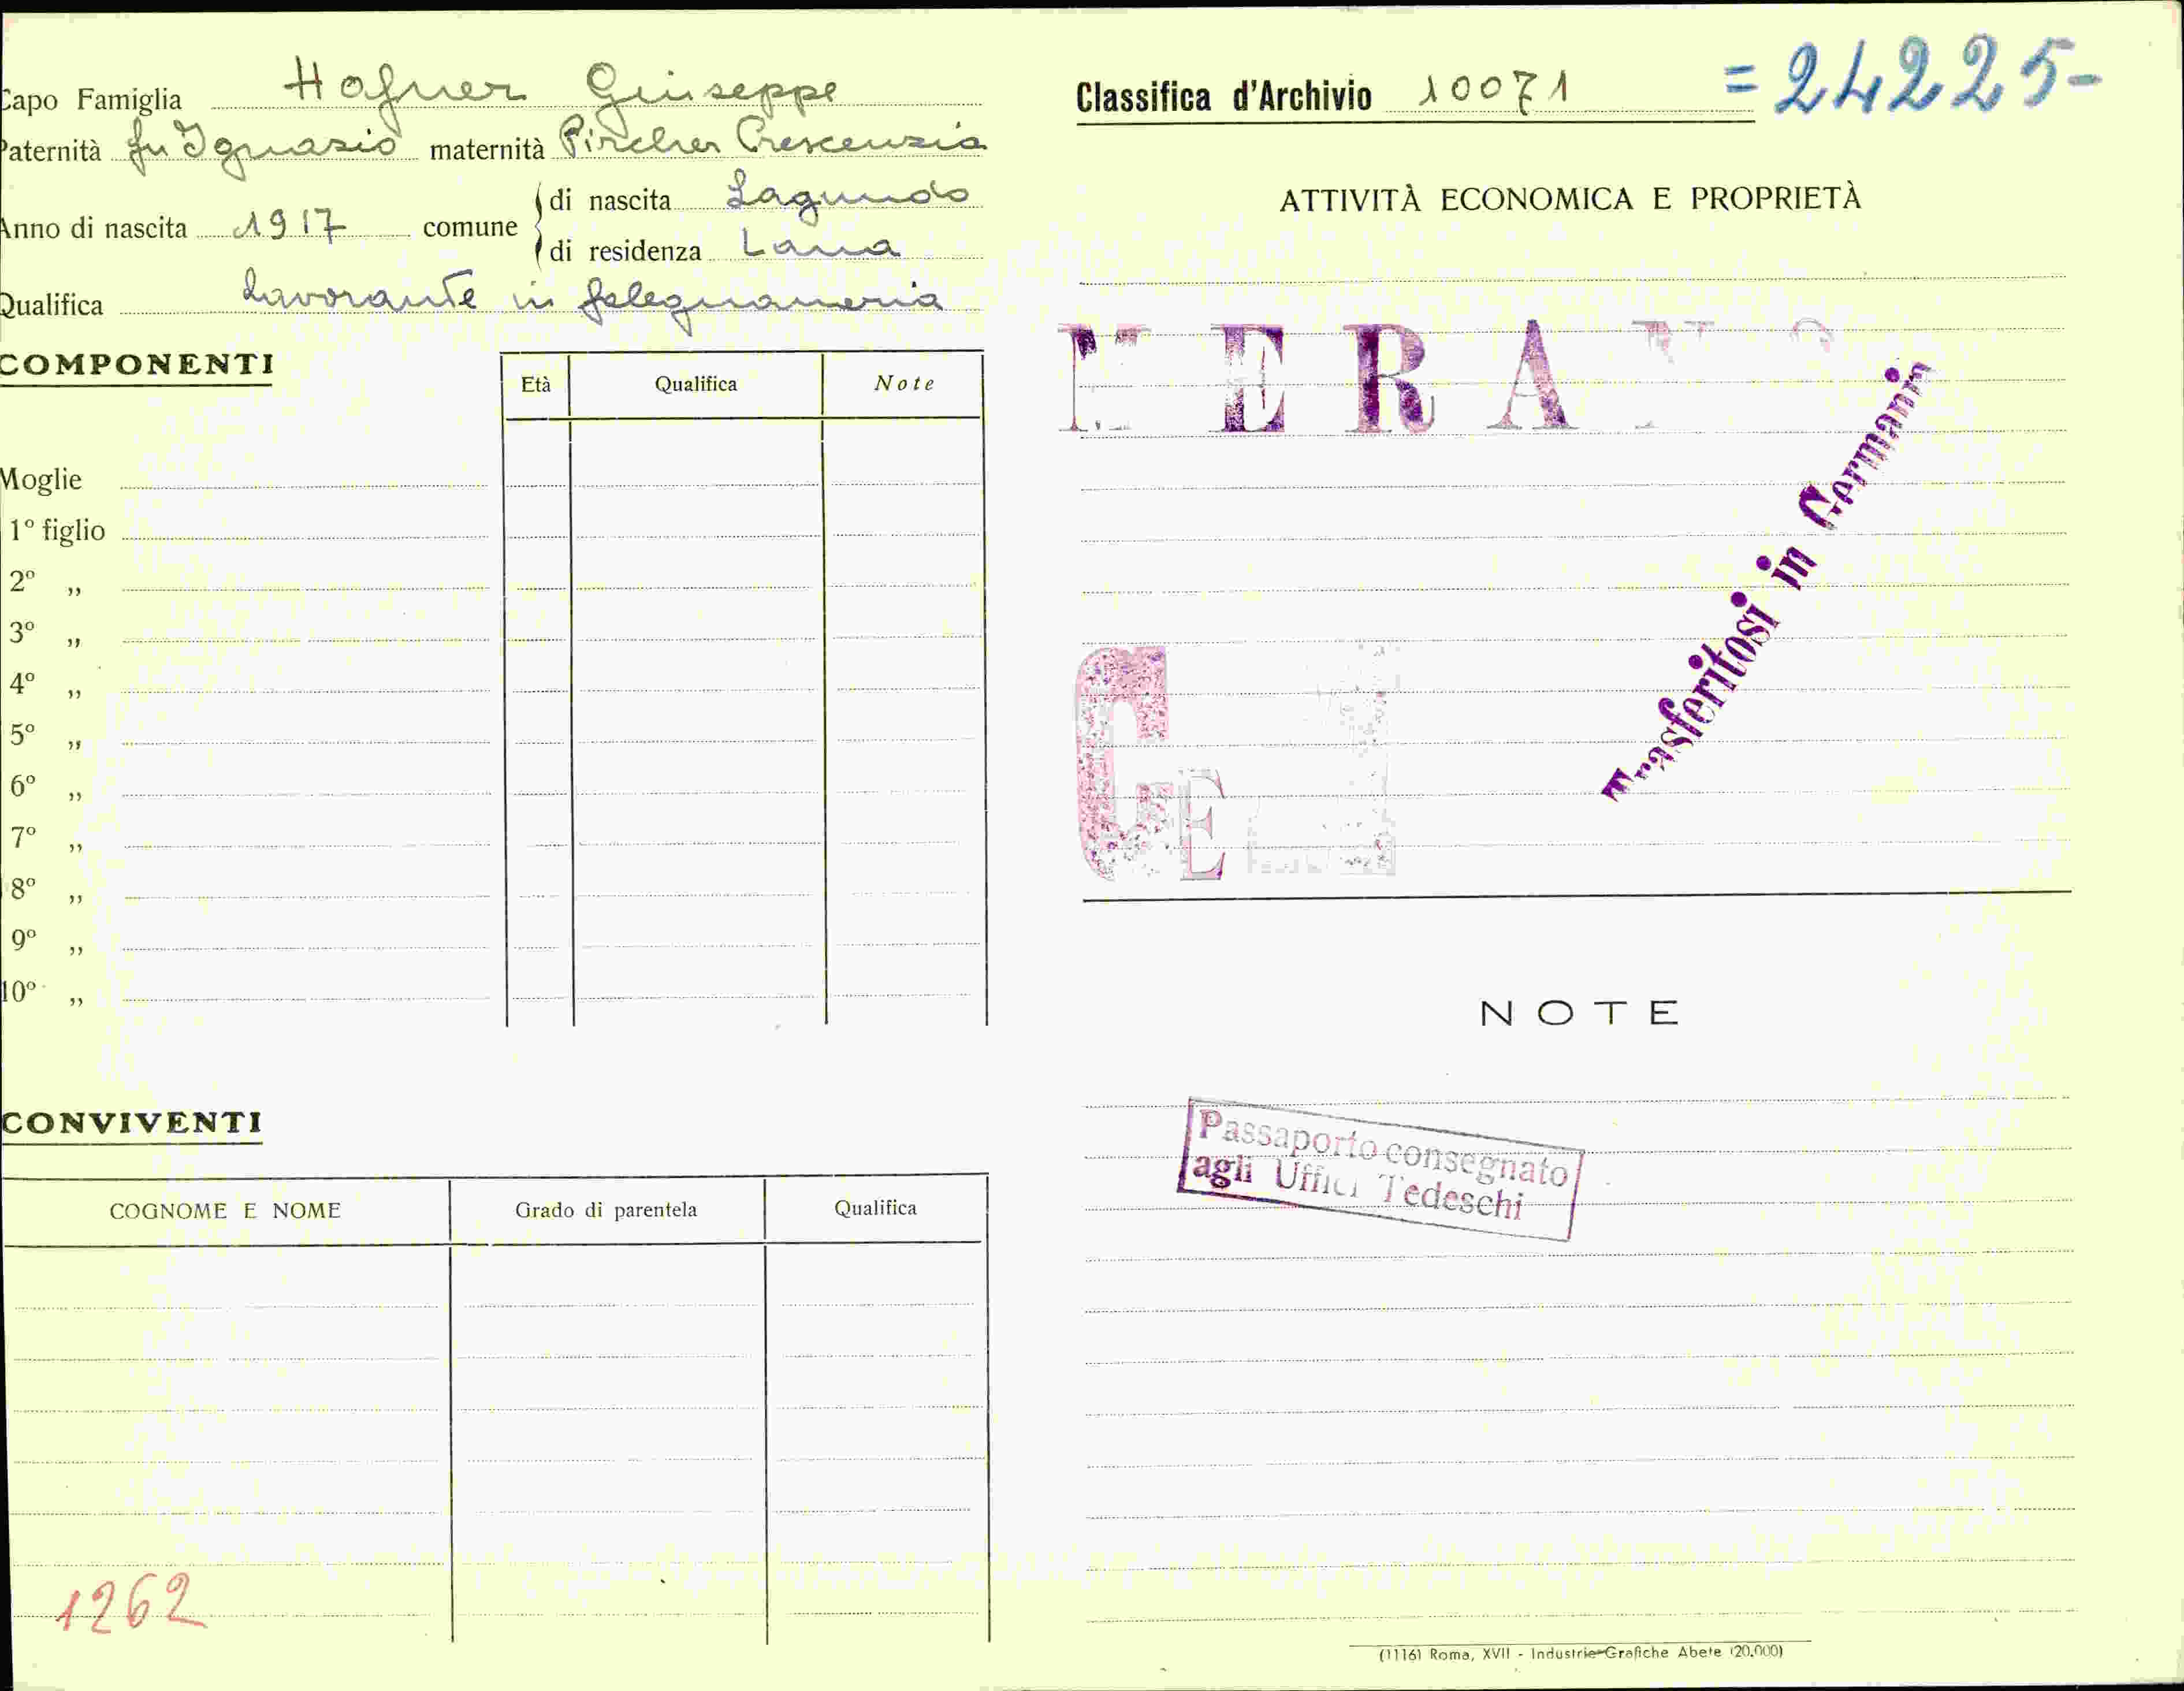 Capo Famiglia Hofner Giuseppe
Paternità fu Ignazio maternità Pircher Crescenzia
Anno di nascita 1917 comune
di nascita Lagundo
di residenza Lana
Qualifica lavorante in falegnameria
COMPONENTI
Età Qualifica Note
Moglie
1º figlio
2º „
3º „
4º „
5º „
6º „
7º „
8º „
9º „
10º „
CONVIVENTI
COGNOME E NOME Grado di parentela Qualifica
1262
Classifica d'Archivio 10071 =24225-
ATTIVITÀ ECONOMICA E PROPRIETÀ
MERANO
Trasferitosi in Germania
GE
NOTE
Passaporto consegnato
agli Uffici Tedeschi
(1116) Roma, XVII - Industrie Grafiche Abete (20.000)